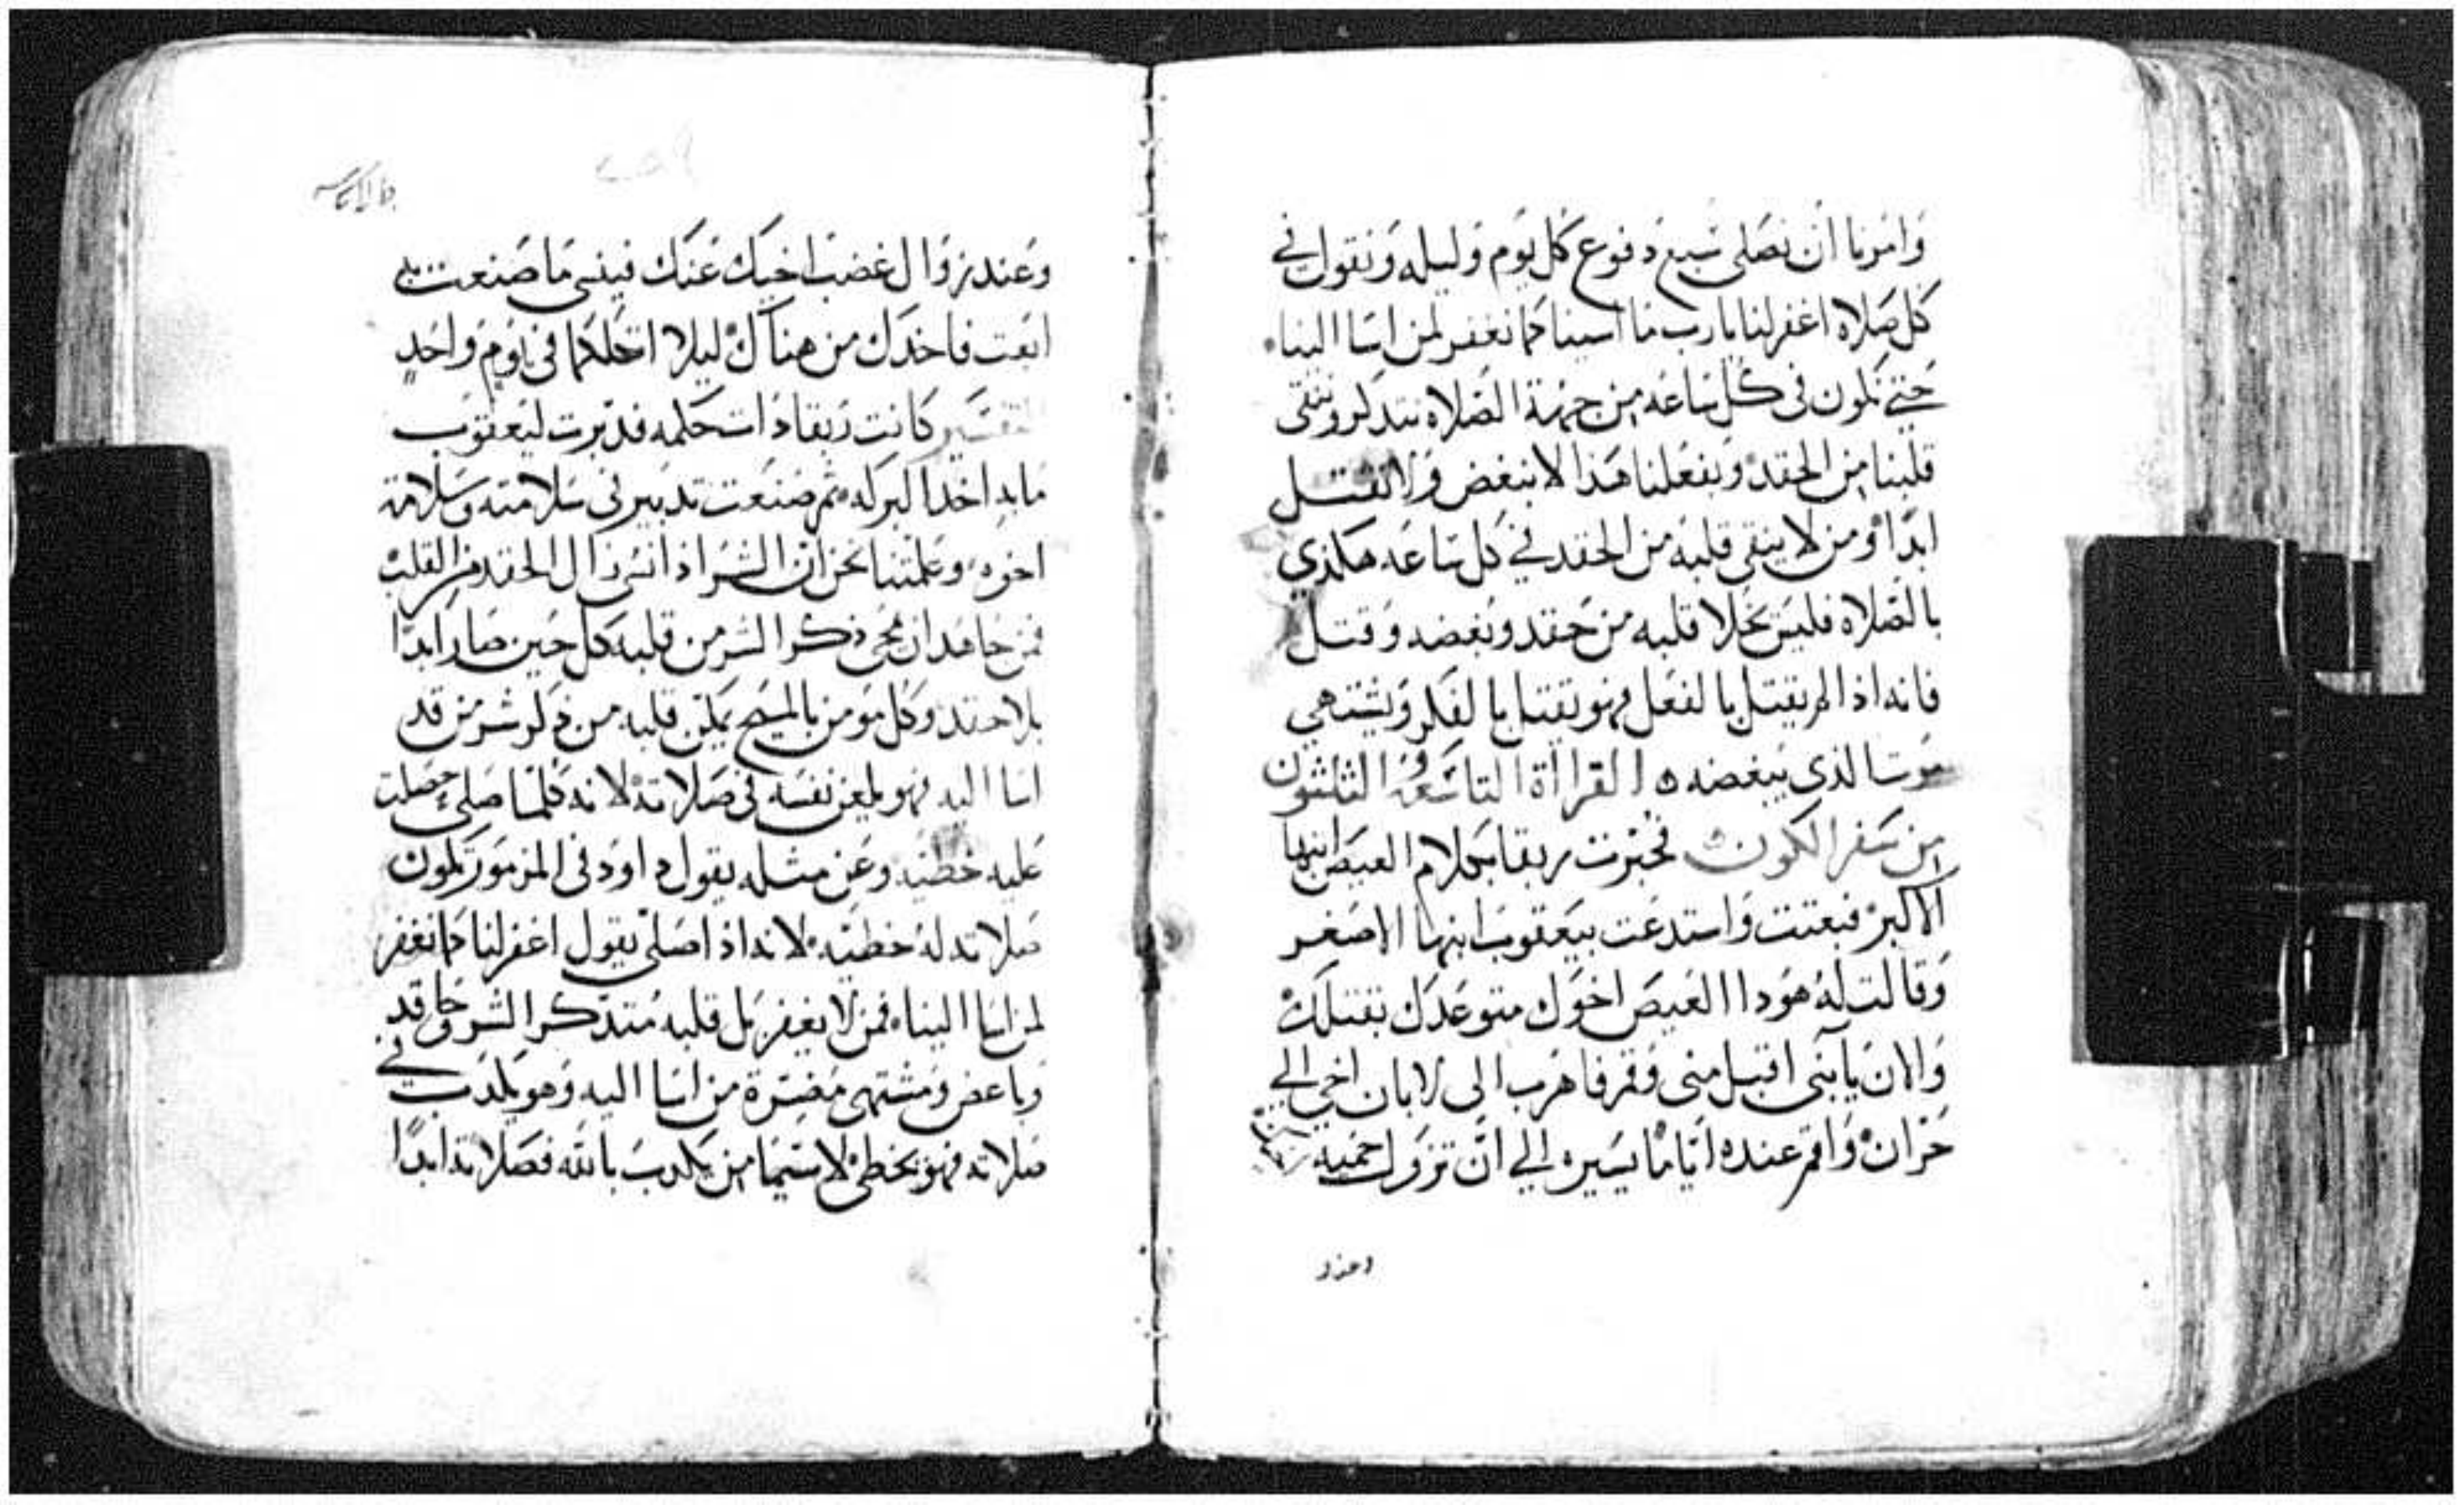 وامرنا ان نصلي سبع دفوع كل يوم وليله ونقول في
كل صلاه اغفر لنا يارب ما اسينا كما نغفر لمن اسا الينا
حتي نكون في كل ساعه من جهة الصلاه نتدكر وننقي
قلبنا من الحقد وبفعلنا هذا لا نبغض ولا نقتل
ابدا ومن لا ينقي قلبه من الحقد في كل ساعه هكذي
بالصلاه فليس يخلا قلبه من حقد وبغضه وقتل
فانه اذا لم يقتل بالفعل فهو يقتل بالفكر ويشتهي
موت الذي يبغضه القراأة التاسعه والثلثون
من سفر الكون فخبرت ربقا بكلام العيص ابنها
الاكبر فبعتت واستدعت بيعقوب ابنها الاصغر
وقالت له هودا العيص اخوك متوعدك بقتلك
والان يابني اقبل مني وقم فاهرب الى لابان اخي الي
حران واقم عنده اياما يسيره الي ان تزول حميه
وعند
وعند زوال غضب اخيك عنك فينسي ما صنعت به
ابعت فاخدك من هناك ليلا اتكلكما في يوم واحد
التفسير كانت ربقا دات حكمه فدبرت ليعقوب
مابه اخد البركه ثم صنعت تدبير في سلامته وسلامة
اخوه وعلمتنا نحن ان الشر اذا نسي زال الحقد من القلب
فمن جاهد ان يمحي ذكر الشر من قلبه كل حين صار ابدا
بلا حقد وكل مومن بالمسيح يمكن قلبه من ذكر شر من قد
اسا اليه فهو يلعن نفسه في صلاته لانه كلما صلي حصلت
عليه خطيه وعن مثله يقول داود في المزمور تكون
صلاته له خطيه لانه اذا صلي يقول اغفر لنا كما نغفر
لمن اسا الينا فمن لا يغفر بل قلبه متدكر الشر وحاقد
وباغض ومشتهي مضرة من اسا اليه وهو يكدب في
صلاته فهو يخطي لا سيما من يكدب بالله فصلاته ابدا